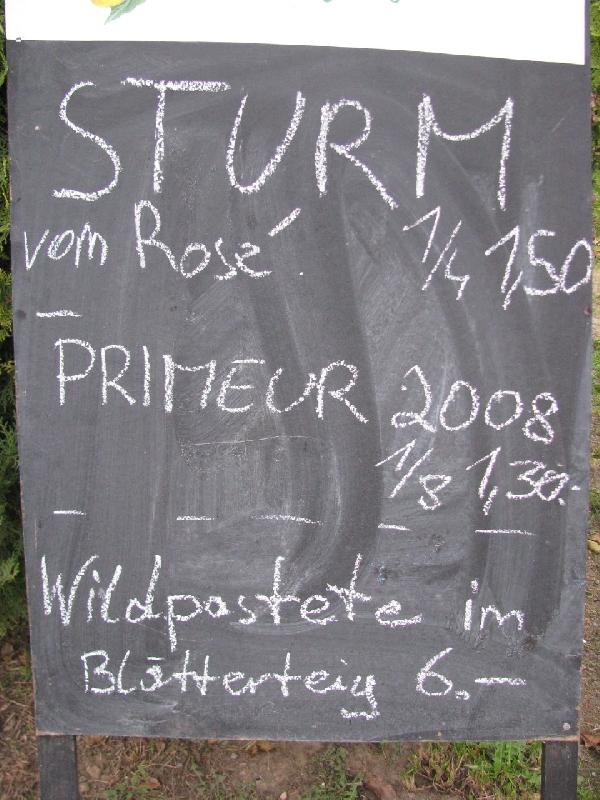 STURM
vom Rosé. 1/4 1,50
–
PRIMEUR 2008
1/8 1,30.-
– – – – –
Wildpastete im
Blätterteig 6,–